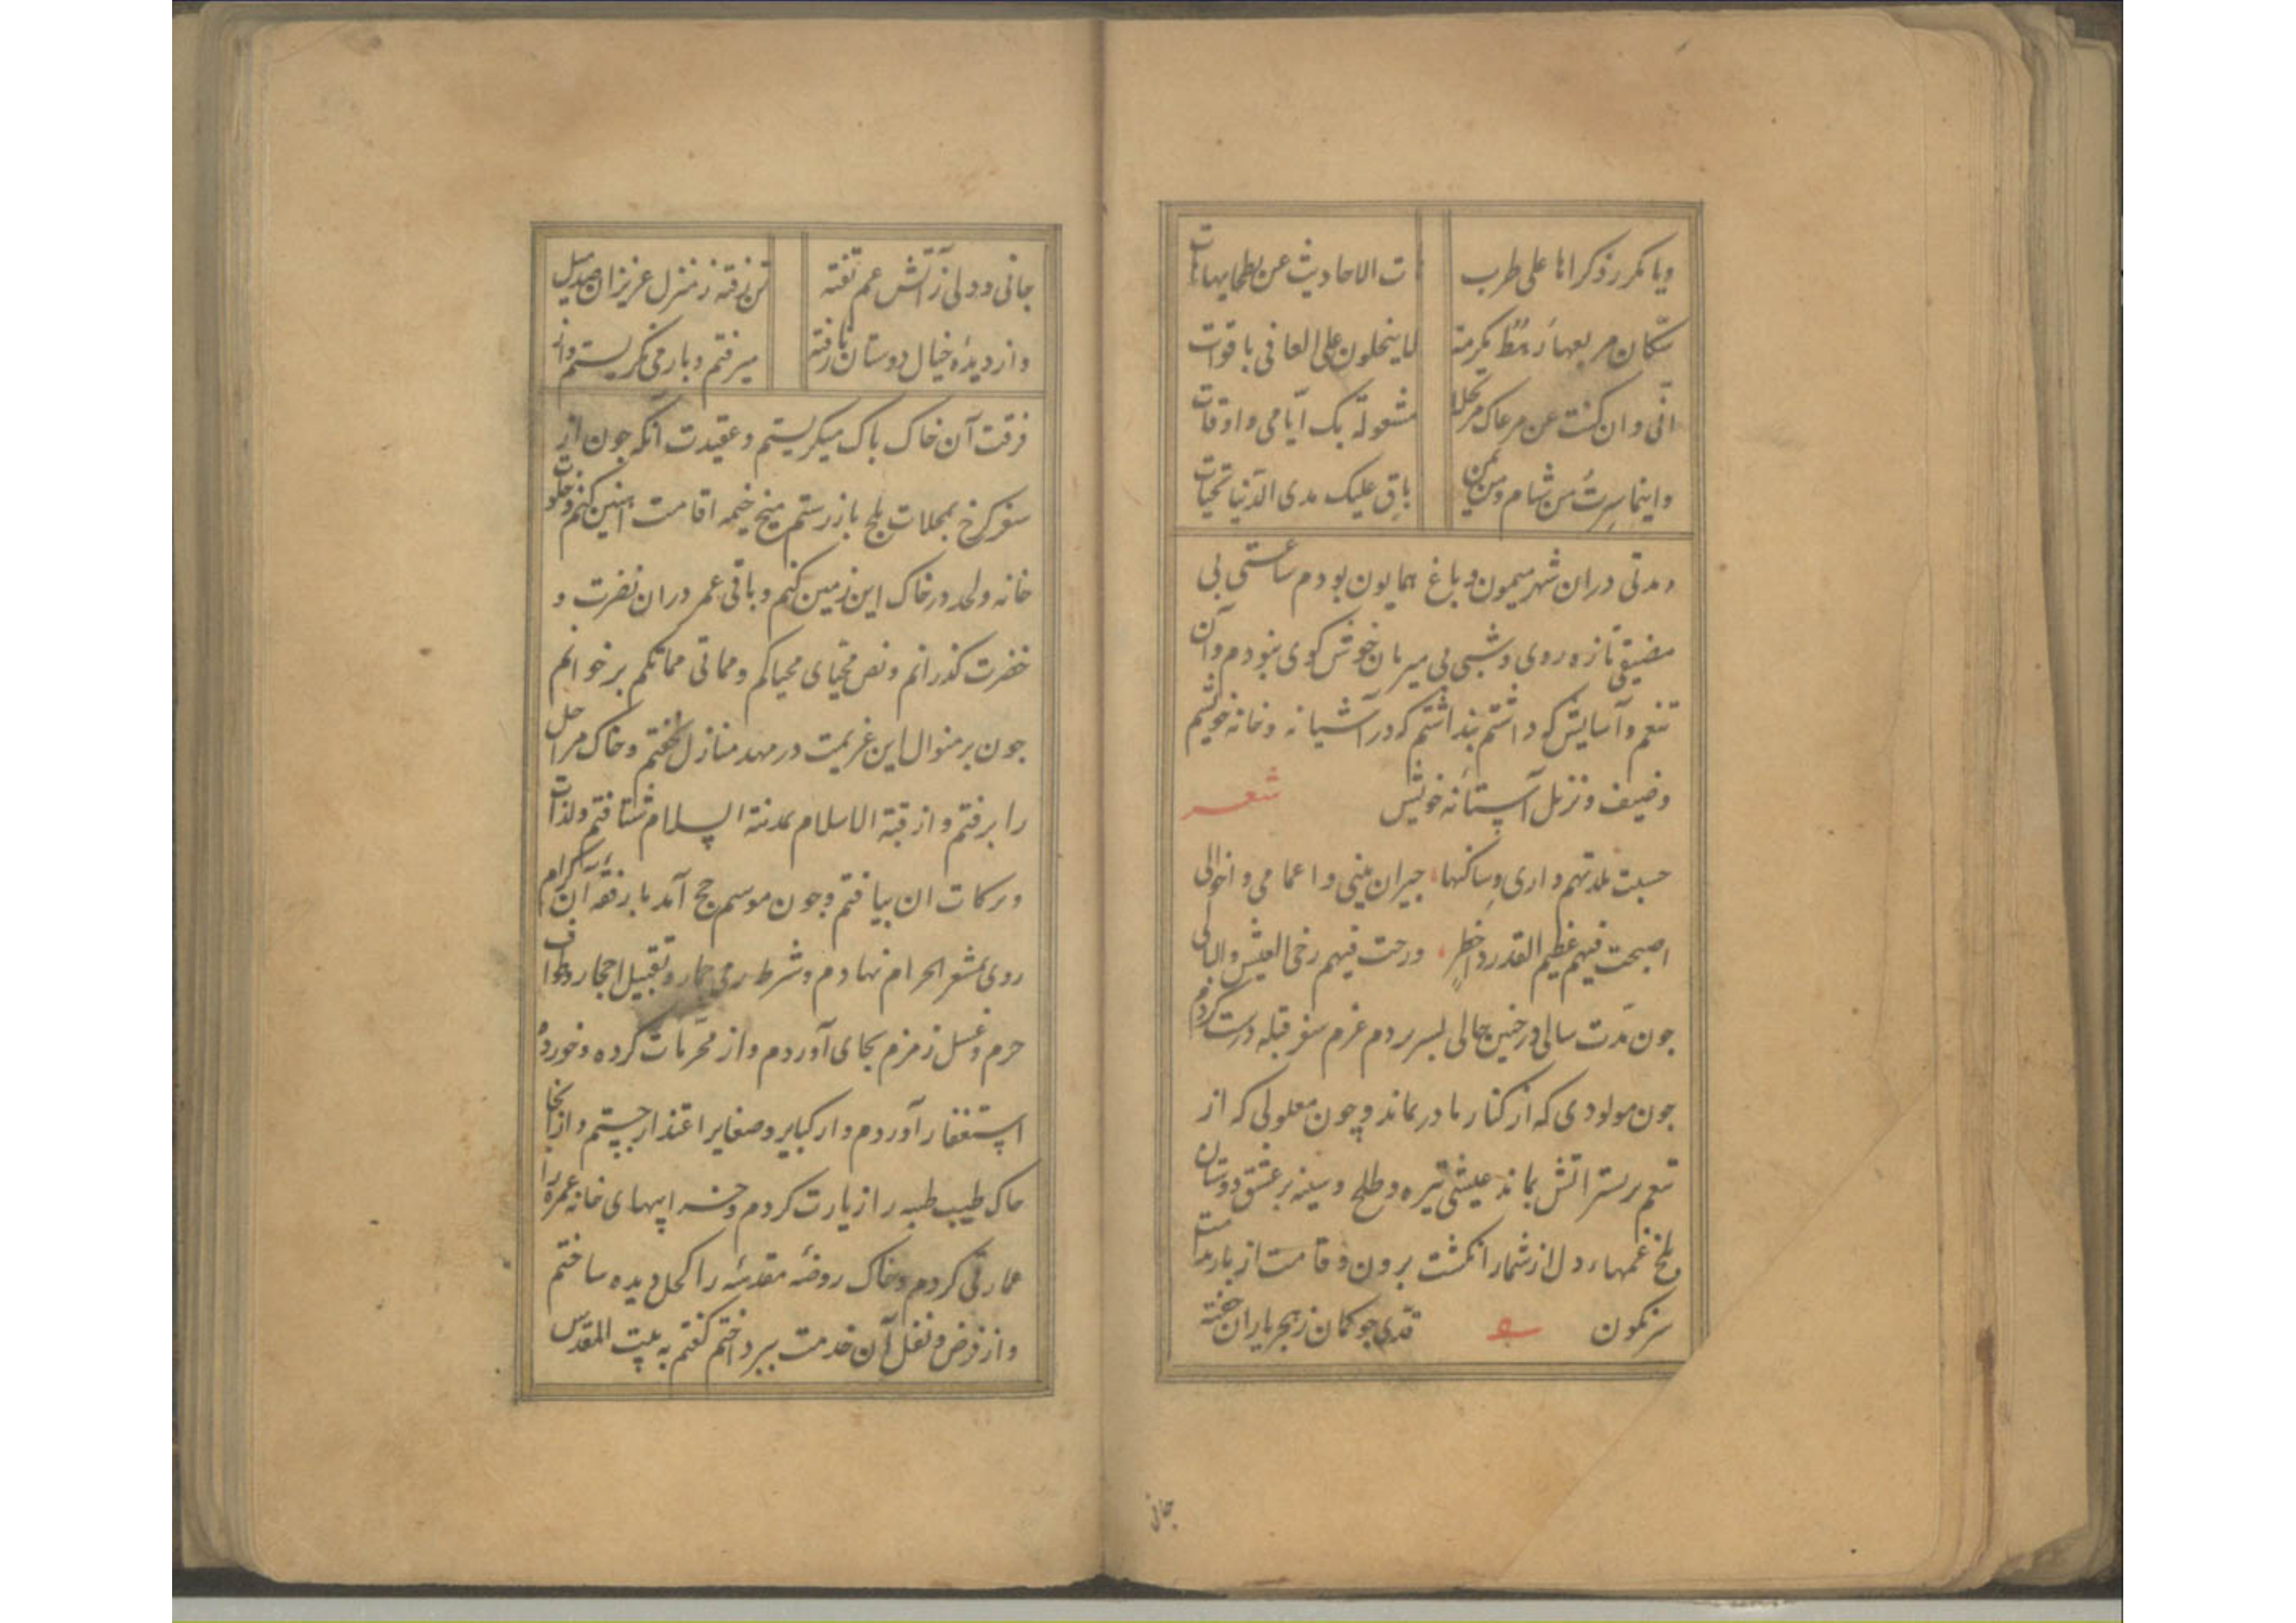 ویا مکرر ذکراها علی طرب
ت الاحادیث عن بطحایها هات
سکان مربعها رهط مکرمة
لا ینحلون علی العافی باقوات
انی وان کنت عن مرعاک مرتحلا
مشعوله بک ایامی و اوقات
واینما سرت من شام و من یمن
باق علیک مدی الدنیا تحیات
و مدتی دران شهر میمون و باغ همایون بودم ساعتی بی
مضیفی تازه روی و شبی بی میزبان خوش کوی نبودم و آن
تنعم و آسایش که داشتم بنداشتم که در آشیانه و خانه خویشم
و ضیف و نزیل آستانه خویش شعر
حسبت بلدتهم داری و ساکنها، جیران بینی و اعمامی و اخوالی
اصبحت فیهم عظیم القدر ذا خطر، ورحت فیهم رخی العیش والبالی
جون مدت سالی در جنین حالی بسر بردم عزم سفر قبله درست کردم
جون مولودی که از کنار مادر بماند و چون معلولی که از
تنعم بر بستر اتش بماند عیشی تیره و طلح و سینه بر عشق دوستان
بلخ غمهاء دل از شمار انکشت برون و قامت از بار ندامت
سرنکون قدی جو کمان ز هجر یاران خفته
جانی
جانی و دلی ز آتش غم تفته
تن رفته ز منزل عزیزان صد میل
و از دیده خیال دوستان نارفته
میرفتم و باز می نکریستم و از
فرقت آن خاک باک میکریستم و عقیدت آنکه جون از
سفر کرخ بمحلات بلخ باز رستم میخ خیمه اقامت آهنین کنم و خلوت
خانه و لحد در خاک این زمین کنم و باقی عمر دران نضرت و
خضرت کذرانم و نص محیای محیاکم و مماتی مماتکم بر خوانم
جون بر منوال این عزیمت در مهد منازل بخفتم و خاک مراحل
را برفتم و از قبة الاسلام بمدینة السلام شتافتم و لذات
و برکات ان بیافتم و جون موسم حج آمد با رفقه آن کرام
روی بمشعر الحرام نهادم و شرط رمی جمار و تقبیل احجار و طواف
حرم و غسل زمزم بجای آوردم و از محرمات کرده و خورده
استغفار آوردم و از کبایر و صغایر اعتذار جستم و از آنجا
خاک طیب طیبه را زیارت کردم و خرابیهای خانه عمره را
عمارتی کردم و خاک روضه مقدسه را کحل دیده ساختم
و از فرض و نفل آن خدمت ببرداختم کفتم به بیت المقدس